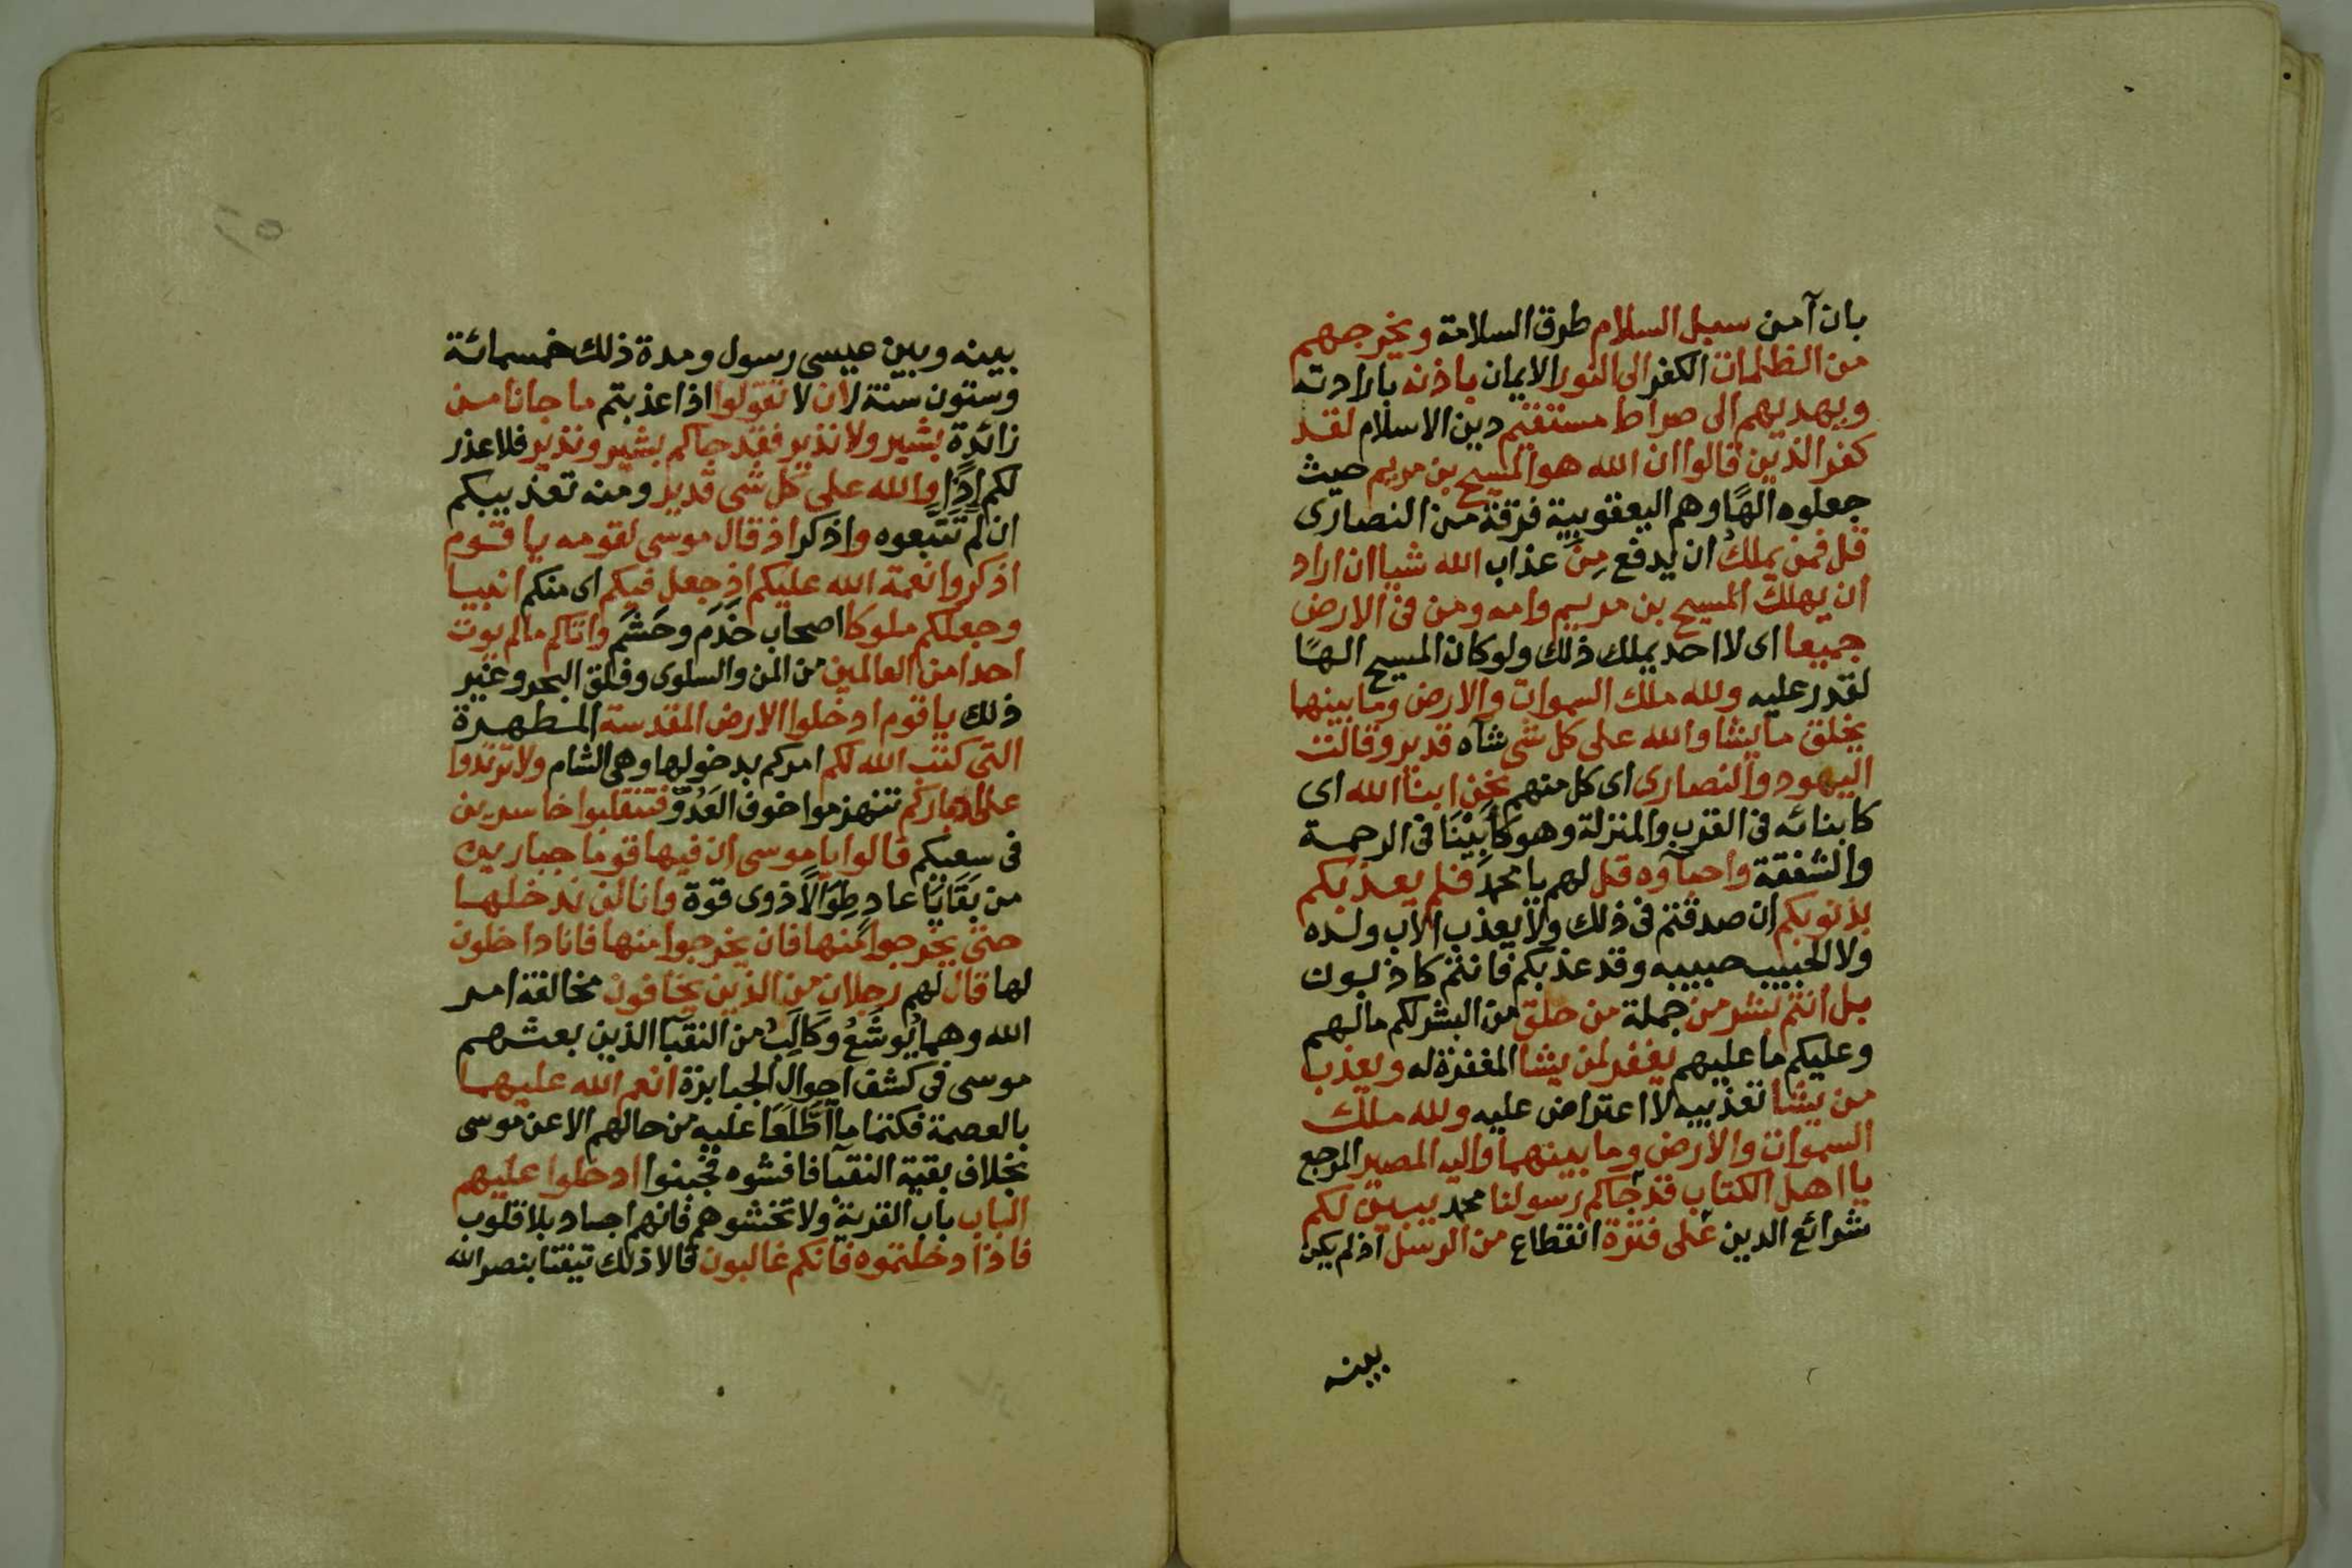 بان آمن سبل السلام طرق السلامة ويخرجهم
من الظلمات الكفر الى النور الايمان باذنه بارادته
ويهديهم الى صراط مستقيم دين الاسلام لقد
كفر الذين قالوا ان الله هو المسيح بن مريم حيث
جعلوه الهًا وهم اليعقوبية فرقة من النصارى
قل فمن يملك ان يدفع مِنَ عذاب الله شيا ان اراد
ان يهلك المسيح بن مريم وامه ومن فى الارض
جميعا اى لا احد يملك ذلك ولو كان المسيح الهًا
لقدر عليه ولله ملك السموات والارض وما بينها
يخلق ما يشا والله على كل شى شآه قدير وقالت
اليهود والنصارى اى كل منهم نحن ابنا الله اى
كابنائه فى القرب والمنزلة وهو كَاَبِيْنَا فى الرحمة
والشفقة واحبآوه قل لهم يا محمد فلم يعذبكم
بذنوبكم ان صدقتم فى ذلك ولا يعذب الاب ولده
ولا الحبيب حبيبه وقد عذبكم فانتم كاذبون
بل انتم بشر من جملة من خلق من البشر لكم مالهم
وعليكم ما عليهم يغفر لمن يشا المغفرة له ويعذب
من يشا تعذيبه لا اعتراض عليه ولله ملك
السموات والارض وما بينهما واليه المصير المرجع
يا اهل الكتاب قد جآكم رسولنا محمد يبين لكم
شرائع الدين على فترة انقطاع من الرسل اذ لم يكن
بينه
بينه وبين عيسى رسول ومدة ذلك خمسمائة
وستون سنة لان لا تقولوا اذا عذبتم ما جانا من
زائدة بشير ولا نذير فقد جاكم بشير ونذير فلا عذر
لكم اِذًا والله على كل شى قدير ومنه تعذيبكم
ان لم تَتَّبعوه واذكر اذ قال موسى لقومه يا قوم
اذكروا نعمة الله عليكم اذ جعل فيكم اى منكم انبيا
وجعلكم ملوكا اصحاب خَدَم وحَشَم واتاكم مالم يوت
احدا من العالمين من المن والسلوى وفلق البحر وغير
ذلك يا قوم ادخلوا الارض المقدسة المطهرة
التى كتب الله لكم امركم بدخولها وهى الشام ولا ترتدوا
على ادباركم تنهزموا خوف العَدُوّ فتنقلبوا خاسرين
فى سعيكم قالوا يا موسى ان فيها قوما جبارين
من بَقَايَا عاد طِوَالًا ذوى قوة وانا لن ندخلها
حتى يخرجوا منها فان يخرجوا منها فانا داخلون
لها قال لهم رجلان من الذين يخافون مخالفة امر
الله وهما يُوشَعُ وكَالِبُ من النقبآ الذين بعثهم
موسى فى كشف احوال الجبابرة انعم الله عليهما
بالعصمة فكتما ما اطَّلَعَا عليه من حالهم الا عن موسى
بخلاف بقية النقبآ فافشوه فجبنوا ادخلوا عليهم
الباب باب القرية ولا تخشوهم فانهم اجساد بلا قلوب
فاذا دخلتموه فانكم غالبون قالا ذلك تيقنا بنصر الله